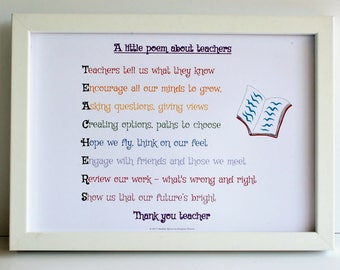 A little poem about teachers
Teachers tell us what they know
Encourage all our minds to grow,
Asking questions, giving views
Creating options, paths to choose
Hope we fly, think on our feet
Engage with friends and those we meet
Review our work – what's wrong and right
Show us that our future's bright
Thank you teacher